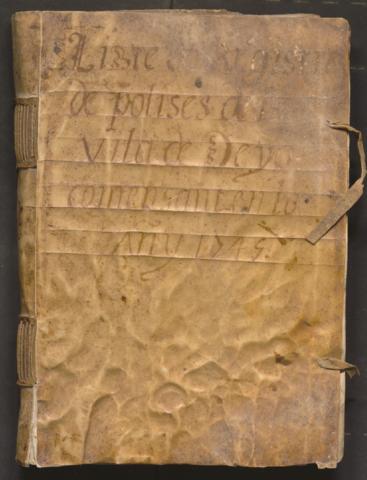 Llibre de Registre
de polises de la
vila de Reyo
comensant en lo
Añy 1745.